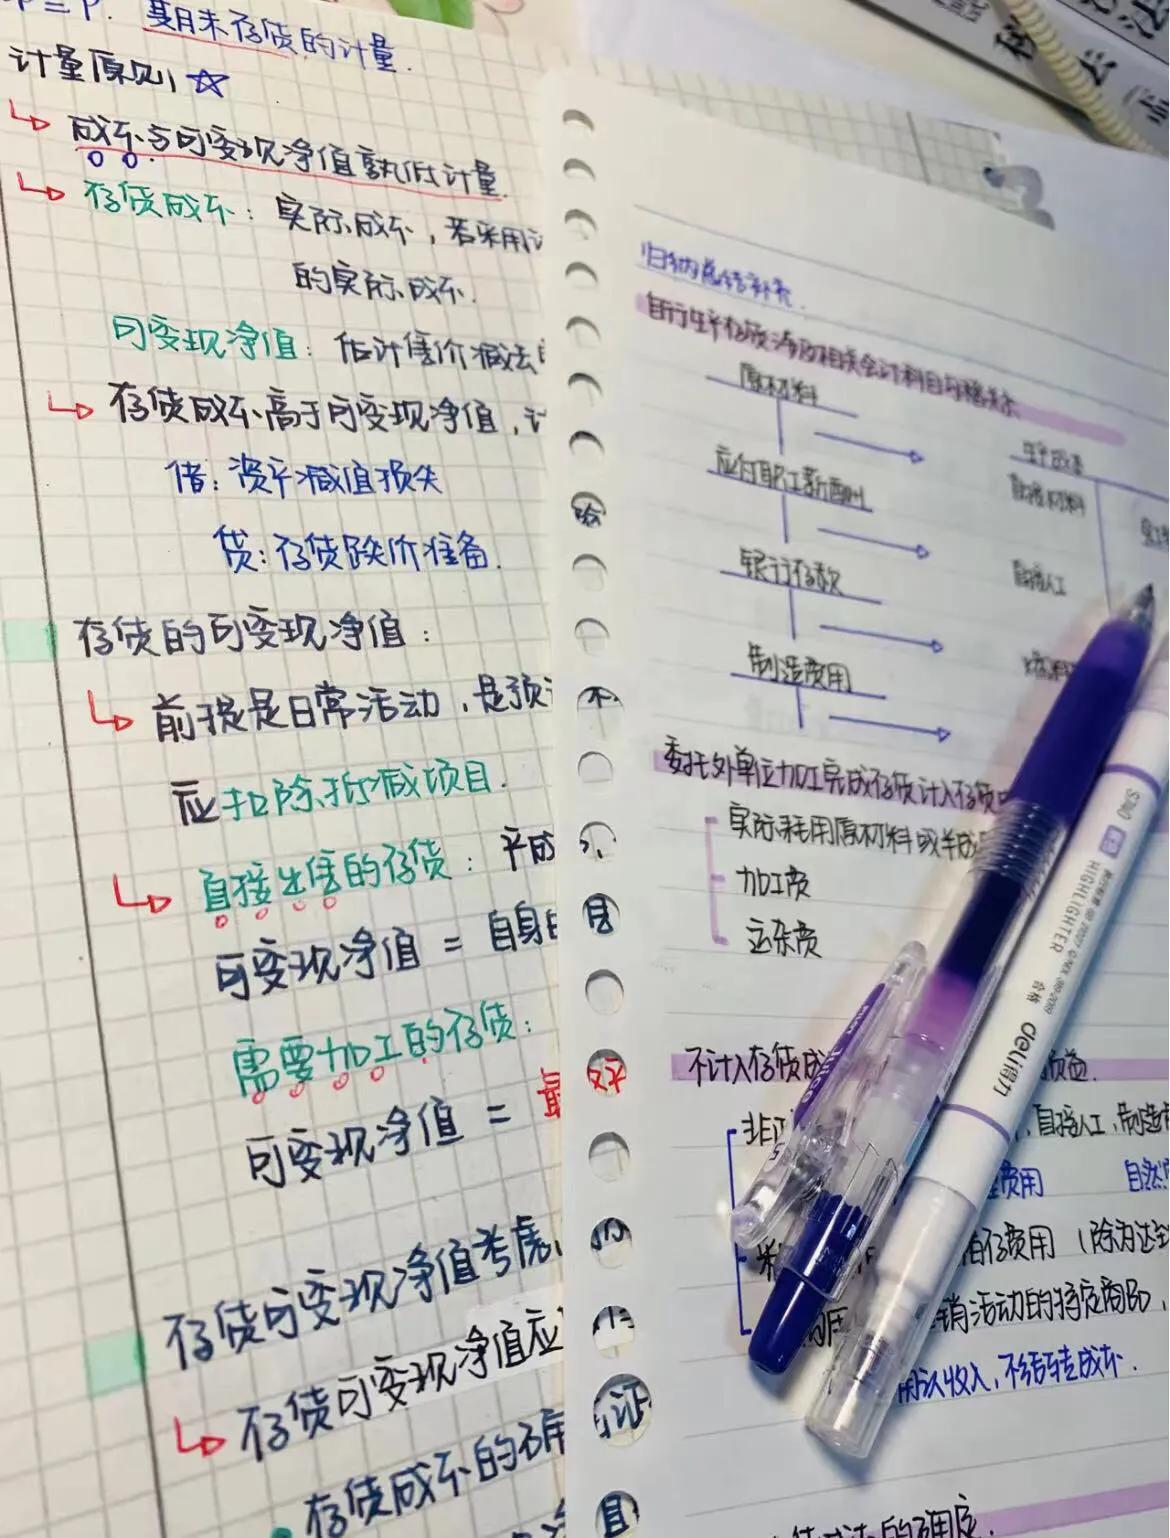 期末存货的计量.
计量原则
成本与可变现净值孰低计量.
存货成本: 实际成本, 若采用
的实际成本.
可变现净值: 估计售价减去
存货成本高于可变现净值,
借: 资产减值损失
贷: 存货跌价准备.
存货的可变现净值:
前提是日常活动, 是预
应扣除抵减项目.
直接出售的存货: 产成
可变现净值 = 自身
需要加工的存货:
可变现净值 =
存货可变现净值考虑
存货可变现净值应
存货成本的确
归纳总结补充.
自行生产存货涉及相关会计科目
原材料
生产成本
直接材料
应付职工薪酬
银行存款
直接人工
制造费用
委托外单位加工完成存货计入存货
实际耗用原材料或半成
加工费
运杂费
不计入存货成
损益.
非正
, 直接人工, 制造
费用
自然
储存费用 (除为达到
销活动的特定商品,
确认收入, 不结转成本.
的确定.
STA
HIGHLIGHTER
合格
deli得力